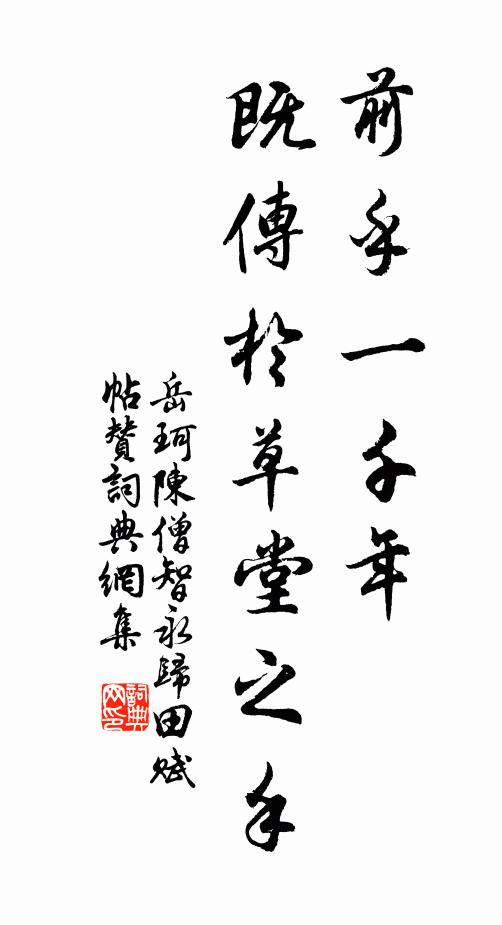 前乎一千年
既傳於草堂之手
岳珂陳僧智永歸田賦
帖贊詞典網集
詞典
网印